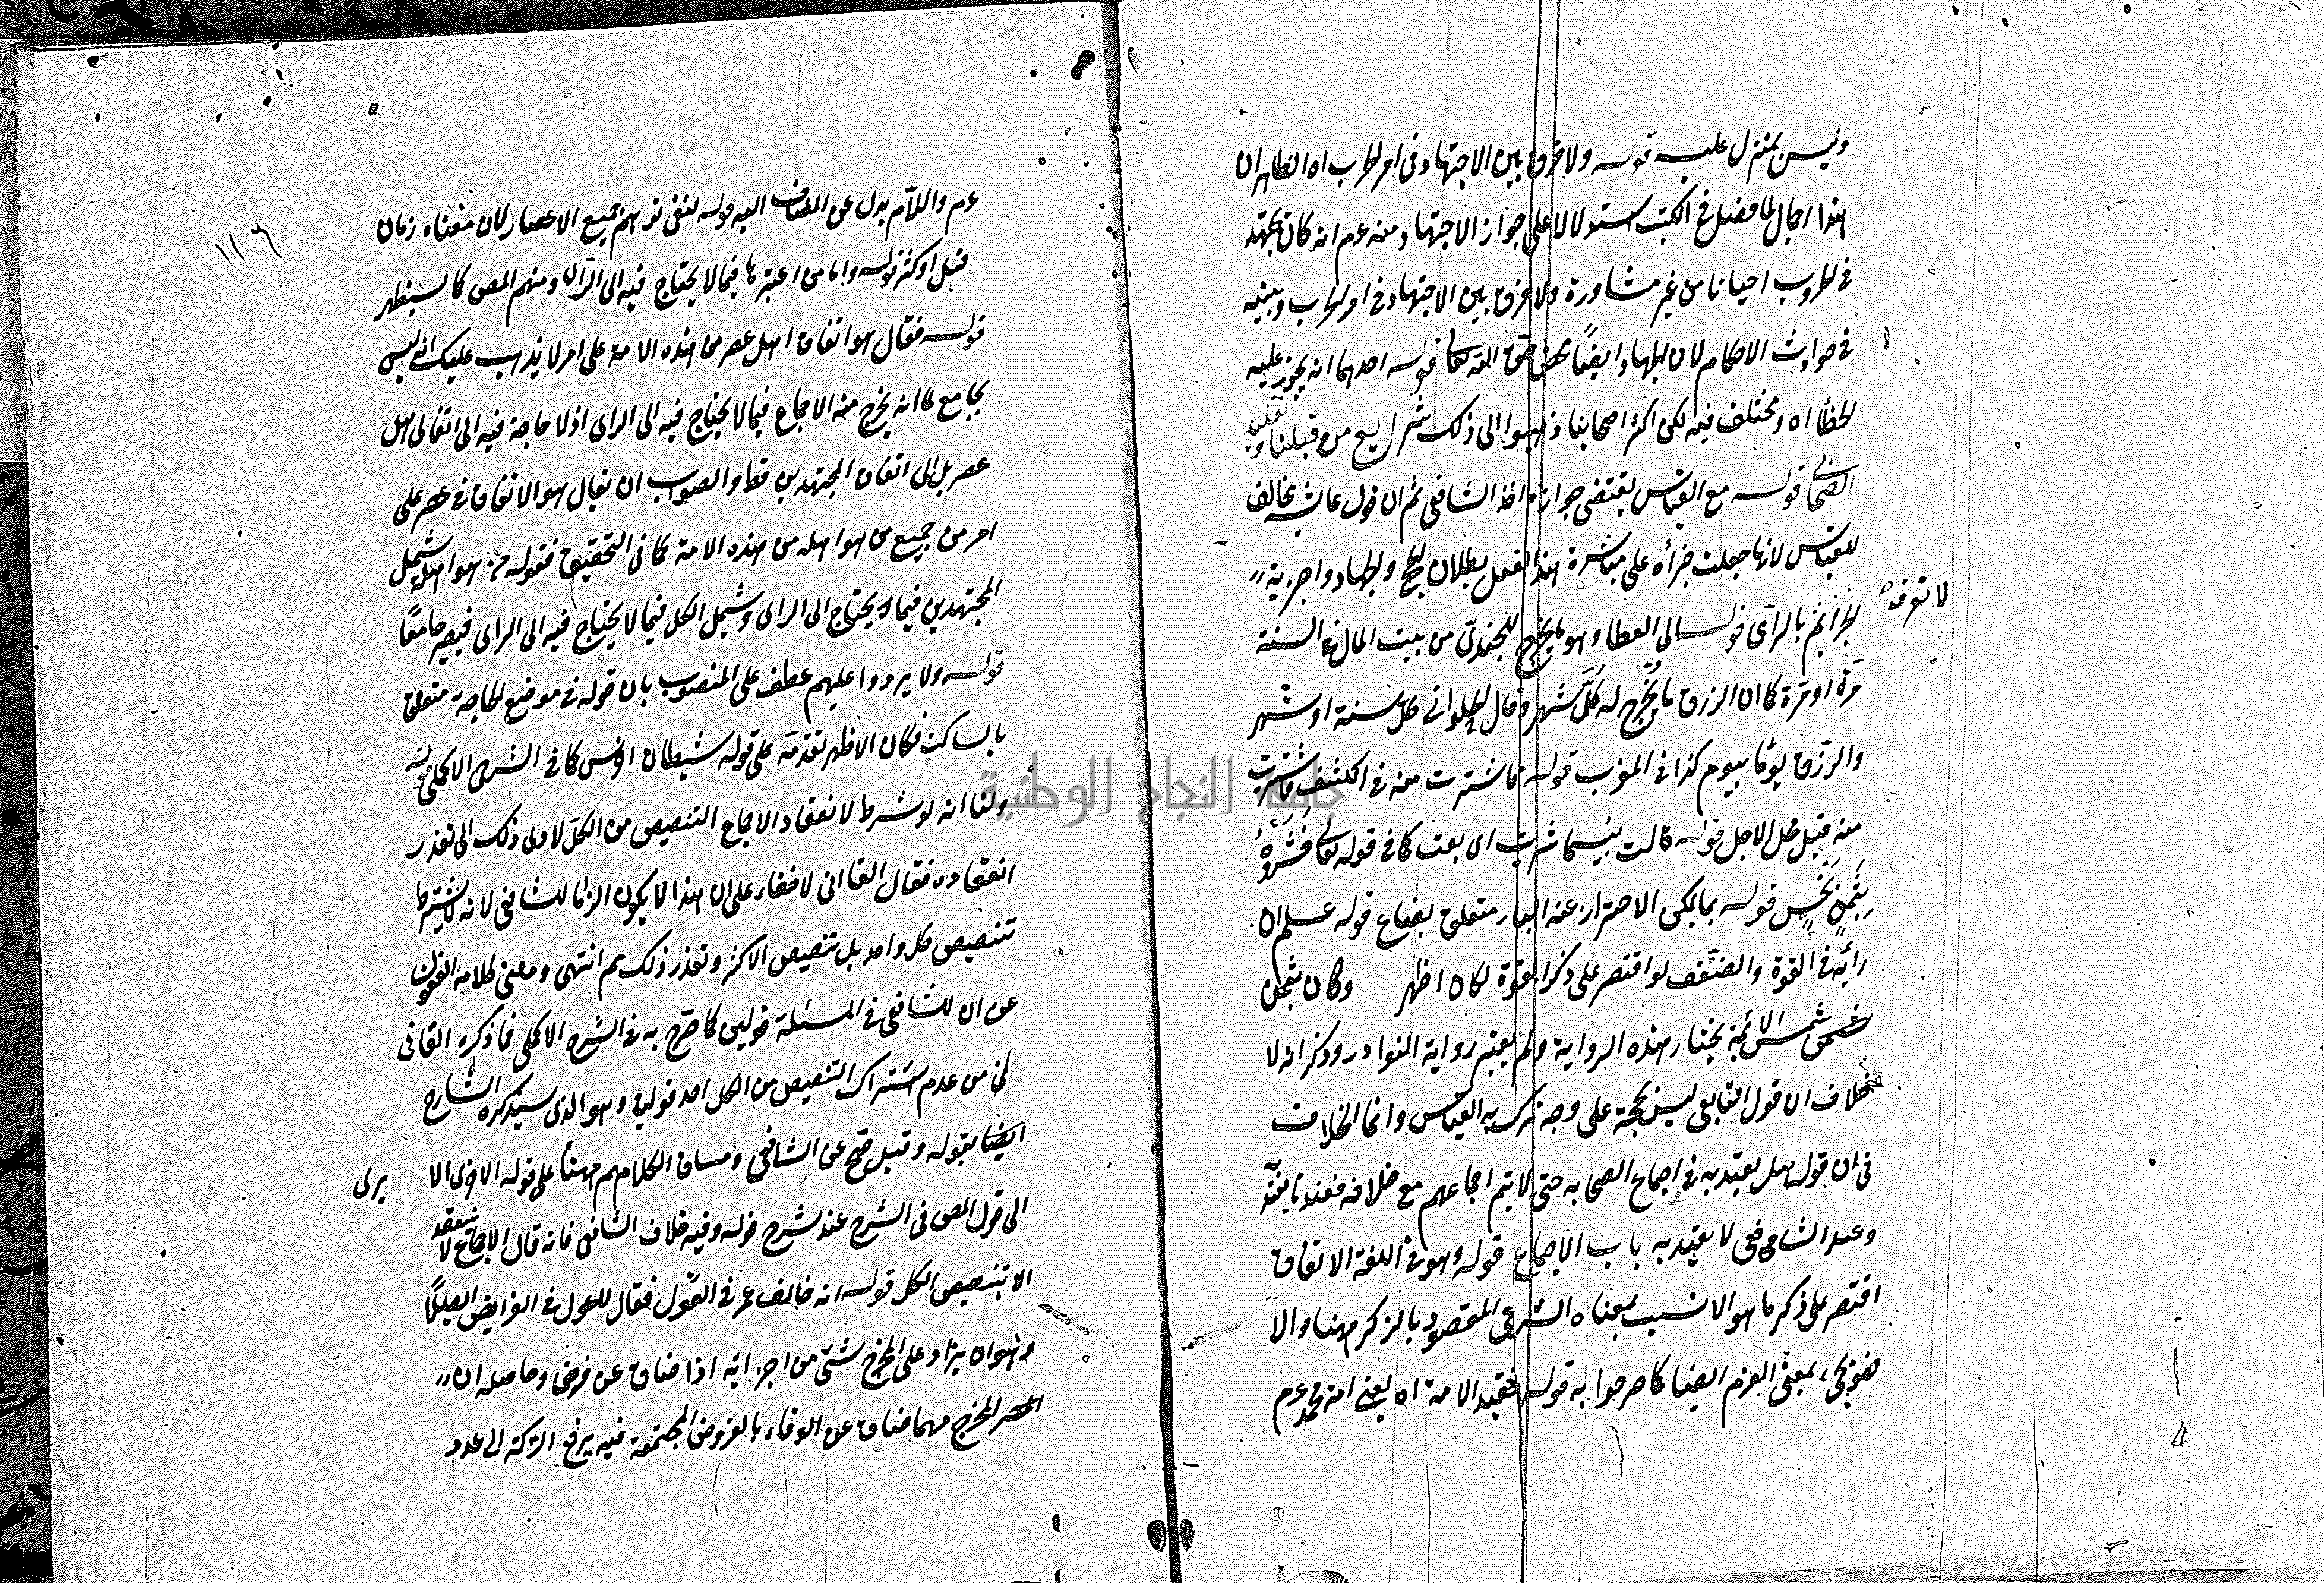 وليس بمنزل عليه قوله ولا فرق بين الاجتهاد في امر الحرب اه الظاهر ان
هذا اجمال لما فصل في الكتب استدلالا على جواز الاجتهاد منه عم انه كان يجتهد
في الحروب احيانا من غير مشاورة ولا فرق بين الاجتهاد في امر الحرب وبينه
في حوادث الاحكام لان الجهاد ايضا محض حق الله تعالى قوله احدهما انه يجوز عليه
الخطأ اه ومختلف فيه لكن اكثر اصحابنا ذهبوا الى ذلك شرايع من قبلنا وتقليد
الصحابي قوله مع القياس يقتضي جوازه اخذ الشافعي ثم ان قول عايشة يخالف
للقياس لانها جعلت جزاه على مباشرة هذا الفعل بطلان الحج والجهاد واجزية
الجرائم بالرأى قوله الى العطاء وهو ما يخرج للجندي من بيت المال في السنة
لا تعرف
مرة او مرة كما ان الرزق ما يخرج له كل شهر وقال الحلواني كل سنة او شهر
والرزق يوما بيوم كذا في المغرب قوله فاشترت منه في الكشف فاشتريت
منه قبل محل الاجل قوله قالت بئسما شريت اى بعت كما في قوله تعالى فشروه
بثمن بخس قوله بما يمكن الاحتراز عنه الباء متعلق بضياع قوله علم ان
رأيه في القوة والضعف لو اقتصر على ذكر القوة لكان اظهر وكان
شمس الائمة يختار هذه الرواية ولم يعتبر رواية النوادر وذكر انه لا
خلاف ان قول التابعي ليس بحجة على وجه يترك به القياس وانما الخلاف
في ان قوله هل يعتد به في اجماع الصحابة حتى لا يتم اجماعهم مع خلافه فعندنا يعتد
وعند الشافعي لا يعتد به باب الاجماع قوله وهو في اللغة الاتفاق
اقتصر على ذكر ما هو الانسب بمعناه الشرعي المقصود بالذكر ههنا والا
فهو يجيء بمعنى العزم ايضا كما صرحوا به قوله فقيد الامة اه يعني امة محمد عم
١١٦
عم واللام بدل عن المضاف اليه قوله لنفي توهم جميع الاعصار لان معناه زمان
قبل او كثر قوله واما من اعتبرها فيما لا يحتاج فيه الى الرأى ومنهم المص كما سيظهر
قوله فقال هو اتفاق اهل عصر من هذه الامة على امر لا يذهب عليك انه ليس
بجامع لما انه يخرج منه الاجماع فيما لا يحتاج فيه الى الراى اذ لا حاجة فيه الى اتفاق اهل
عصر بل الى اتفاق المجتهدين فقط والصواب ان يقال هو الاتفاق في عصر على
امر من جميع من هو اهله من هذه الامة كما في التحقيق فقوله من هو اهله يشمل
المجتهدين فيما يحتاج الى الراى ويشمل الكل فيما لا يحتاج فيه الى الراى فيصير جامعا
قوله ولا يردوا عليهم عطف على المنصوب بان قوله في موضع الحاجة متعلق
بالساكت فكان الاظهر تقدمه على قوله شيطان اخرس كما في الشرح الاكملي قوله
ولنا انه لو شرط لانعقاد الاجماع التنصيص من الكل لادى ذلك الى تعذر
انعقاده فقال القاآنى لا خفاء على ان هذا لا يكون الزاما للشافعي لانه لا يشترط
تنصيص كل واحد بل تنصيص الاكثر وتعذر ذلك مم انتهى ومعنى كلامه الغفول
عن ان للشافعي في المسئلة قولين كما صرح به في الشرح الاكملي فما ذكره القاآنى
من عدم اشتراك التنصيص من الكل احد قوليه وهو الذي سيذكره الشارح
ايضا بقوله وقيل صح عن الشافعي ومساق الكلامهم ههنا على قوله الاخرى الا يرى
الى قول المص في الشرح عند شرح قوله وفيه خلاف الشافعي فانه قال الاجماع لا ينعقد
الا بتنصيص الكل قوله انه خالف عمر في العول فقال للعول في الفرائض اصلا
وهو ان يزاد على المخرج شئ من اجزائه اذا ضاق عن فرض وحاصله ان
المخرج مهما ضاق عن الوفاء بالفروض المجتمعة فيه يرفع التركة الى عدد
جامعة النجاح الوطنية